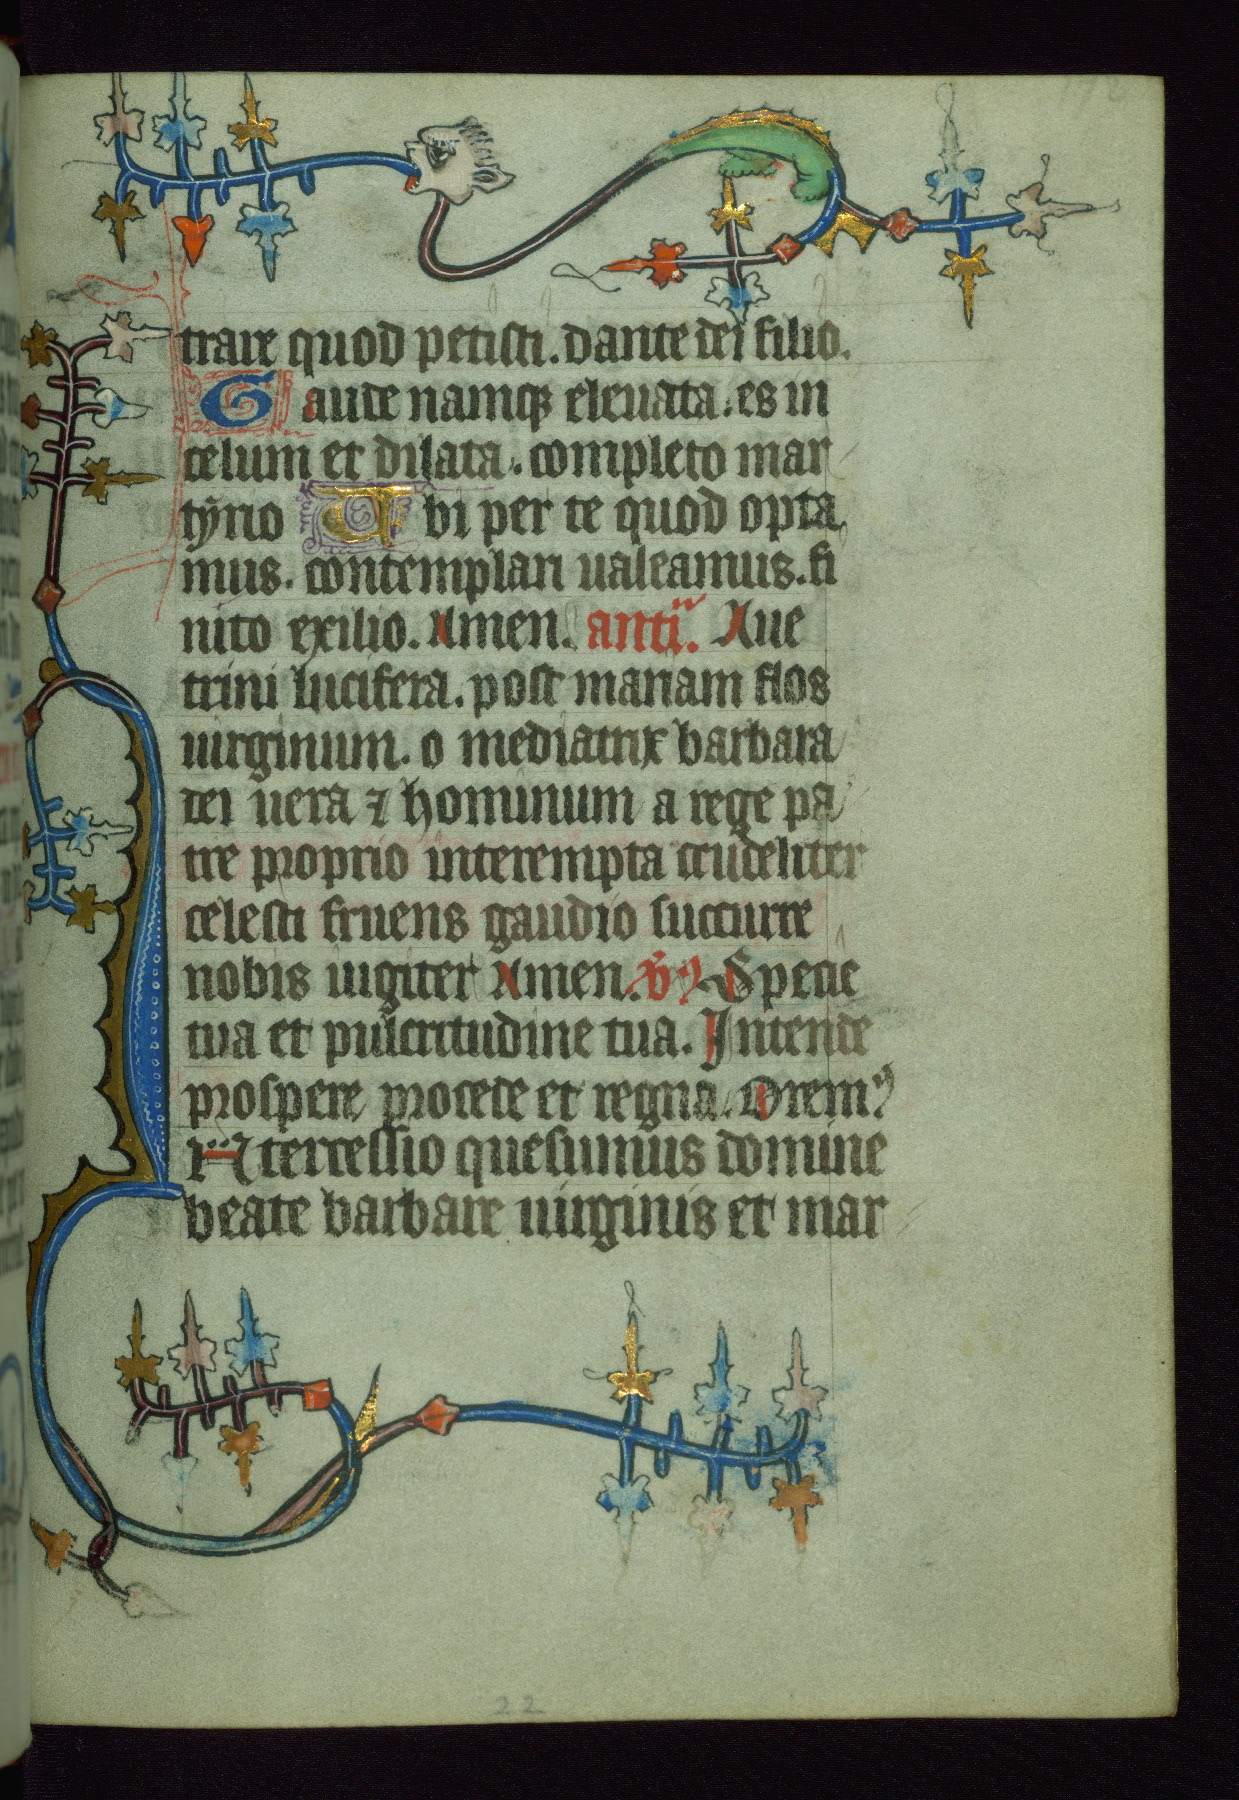 trare quod petisti. dante dei filio.
Gaude namqꝫ eleuata. es in
celum et dilata. completo mar
tyrio Ubi per te quod opta
mus. contemplari ualeamus. fi
nito exilio. Amen. anti. Aue
trini lucifera. post mariam flos
uirginum. o mediatrix barbara
dei uera ⁊ hominum a rege pa
tre proprio interempta crudeliter
celesti fruens gaudio succurre
nobis iugiter Amen. Specie
tua et pulcritudine tua. Intende
prospere procede et regna. Oremꝰ
Intercessio quesumus domine
beate barbare uirginis et mar
22